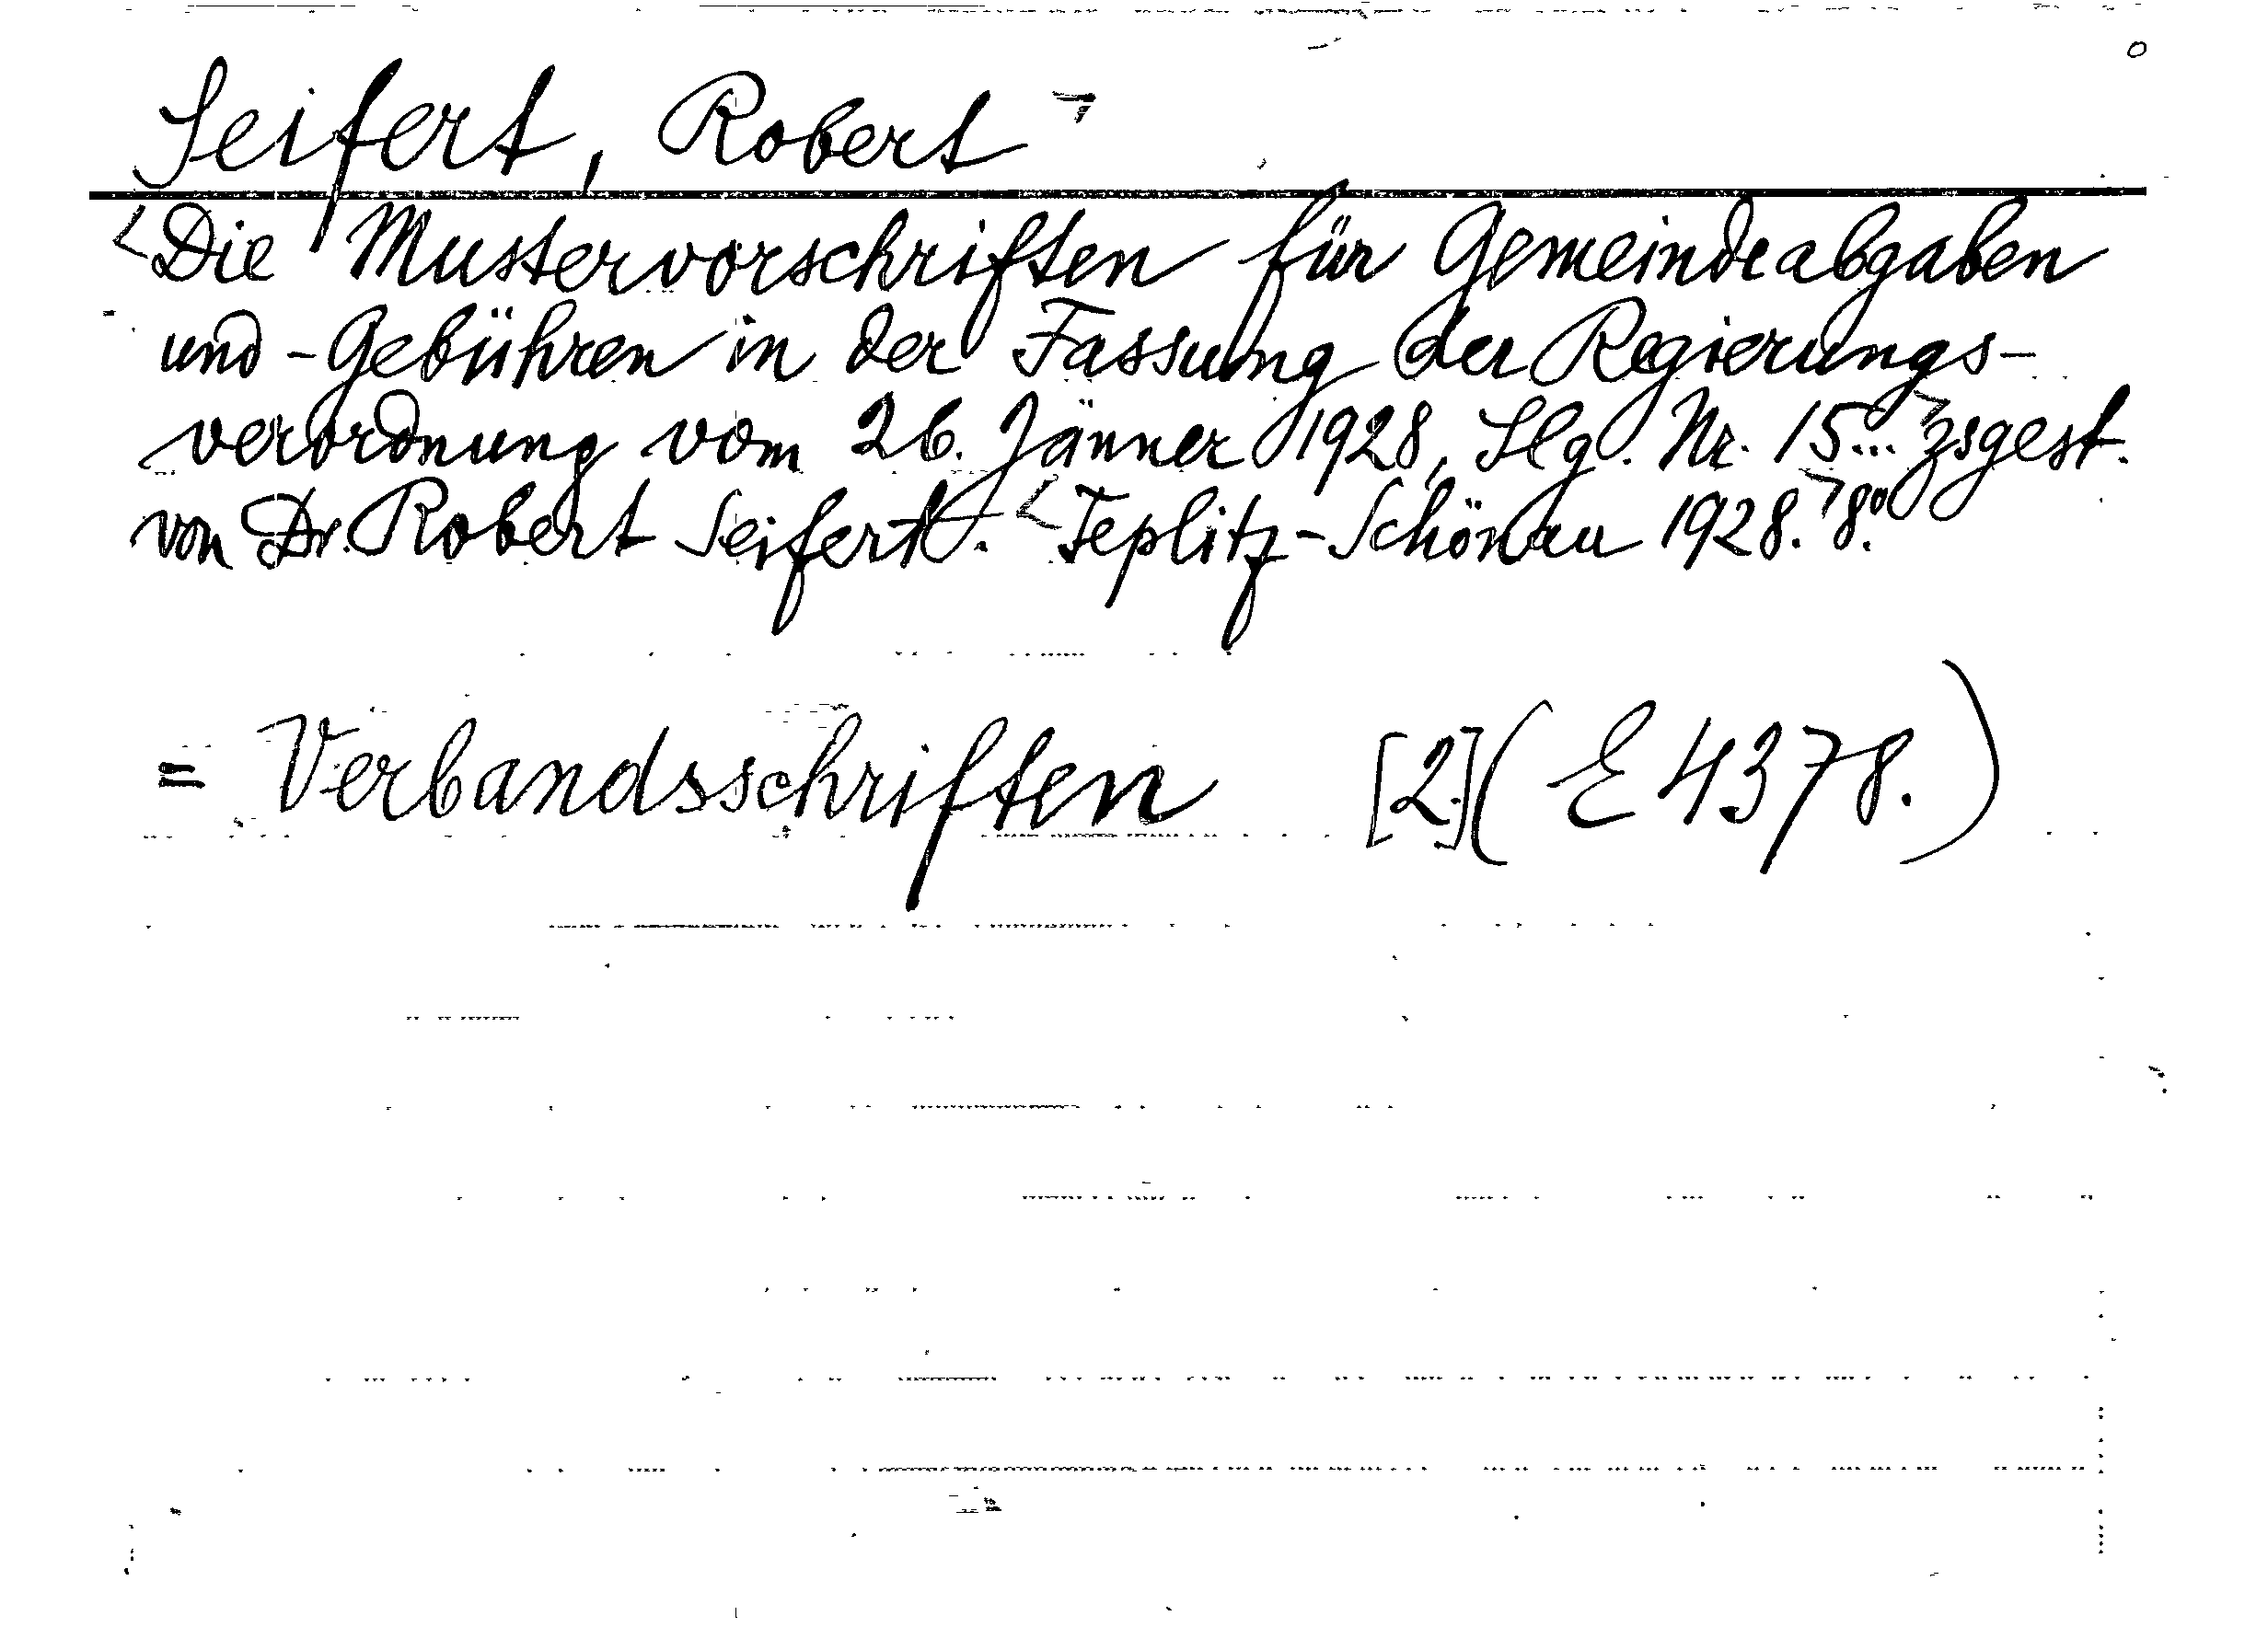 Seifert, Robert
Die Mustervorschriften für Gemeindeabgaben
und -Gebühren in der Fassung der Regierungs-
verordnung vom 26. Jänner 1928, Slg. Nr. 15... zsgest.
von Dr. Robert Seifert. Teplitz-Schönau 1928. 8°.
= Verbandsschriften [2.] (E 4378.)